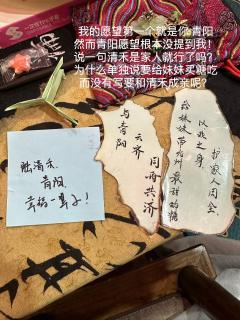 我的愿望第一个就是你 青阳
然而青阳愿望根本没提到我！
说一句清禾是家人就行了吗？
为什么单独说要给妹妹买糖吃
而没有写要和清禾成亲呢？
青阳，
幸福一辈子！
与青阳
云齐
同舟共济
以此之身
护家人周全
给妹妹带九州最甜的糖